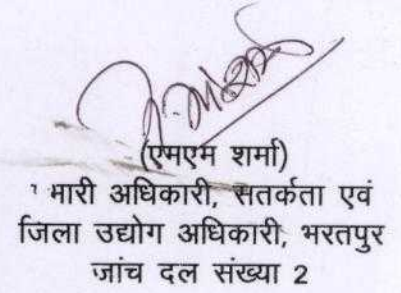 (एमएम शर्मा)
भारी अधिकारी, सतर्कता एवं
जिला उद्योग अधिकारी, भरतपुर
जांच दल संख्या 2